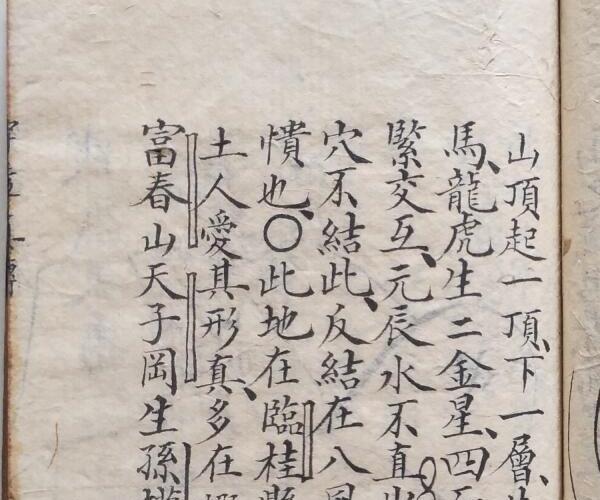 山頂起一頂、下一層、
馬、龍虎生二金星、四
緊交互、元辰水不直
穴不結此、反結在八
憒也、〇此地在臨桂縣
土人愛其形真、多在
富春山天子岡生孫